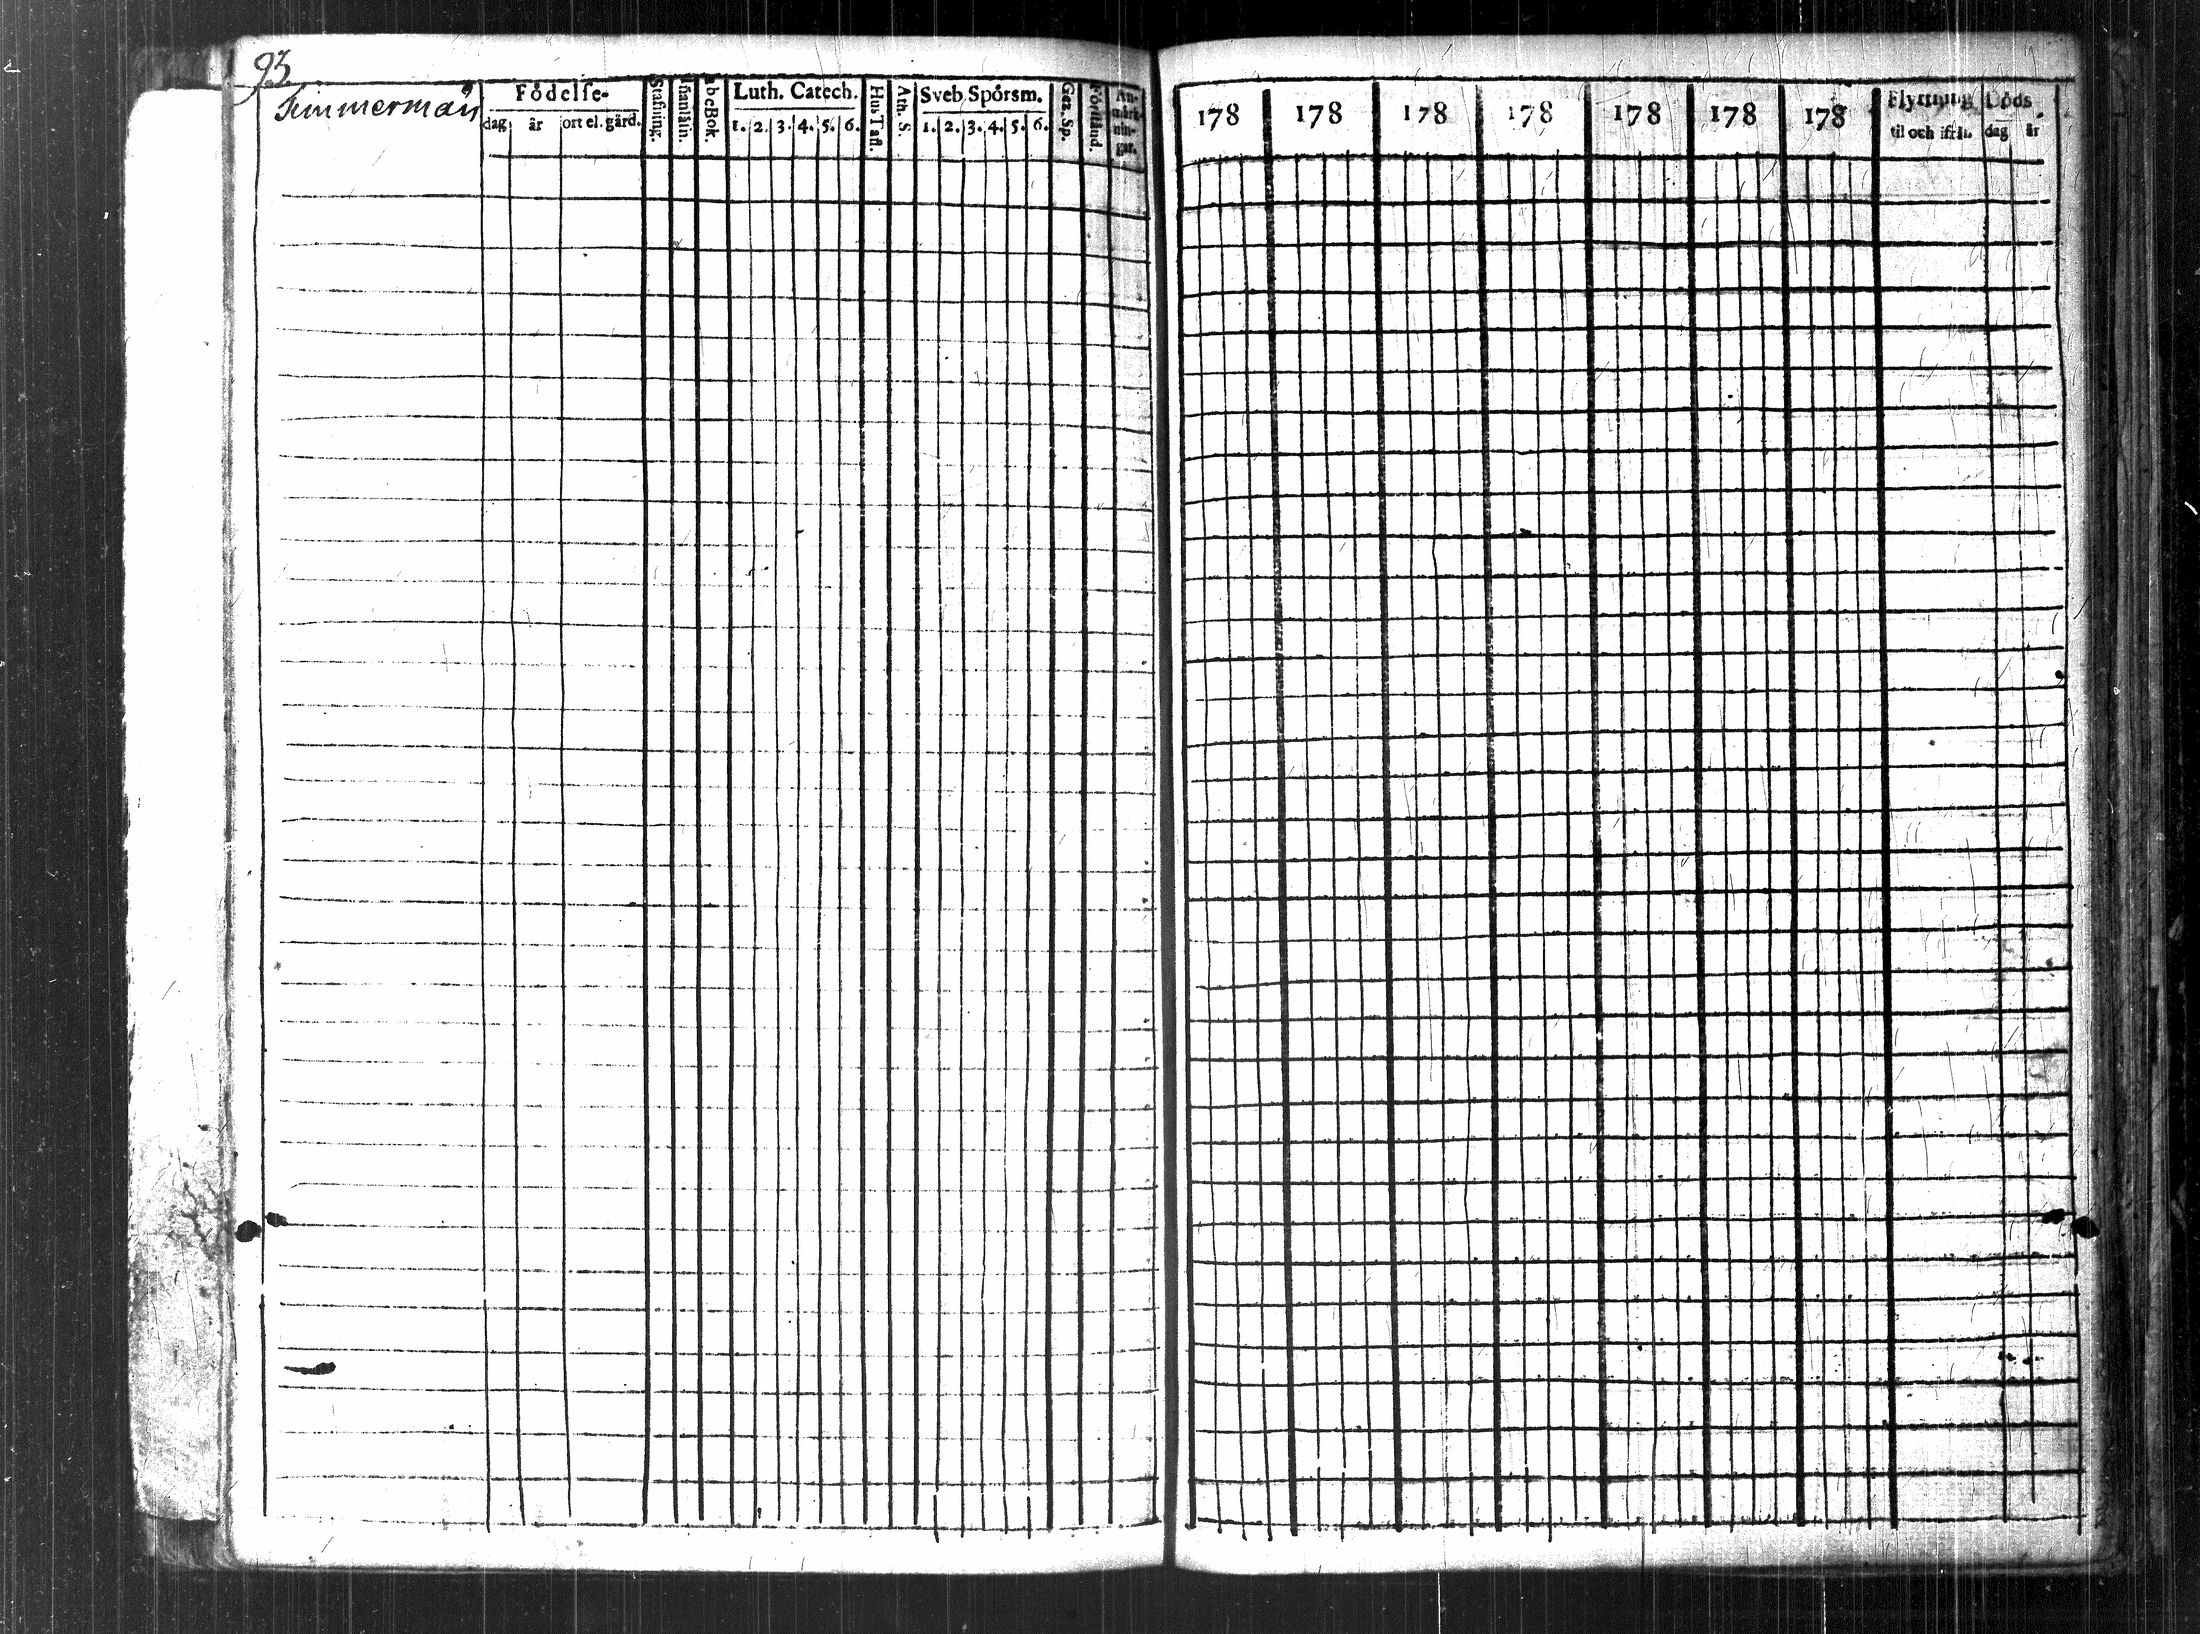 93
Timmerman
Födelse- Stafning. Innanläsn. AbcBok. Luth. Catech. Hus Tafl. Ath. S. Sveb Spörsm. Gez. Sp. Förstånd. An-
märk-
nin-
gar.
dag år ort el. gård. 1. 2. 3. 4. 5. 6. 1. 2. 3. 4. 5. 6.
178 178 178 178 178 178 178 Flyttning Döds
til och ifrån dag år